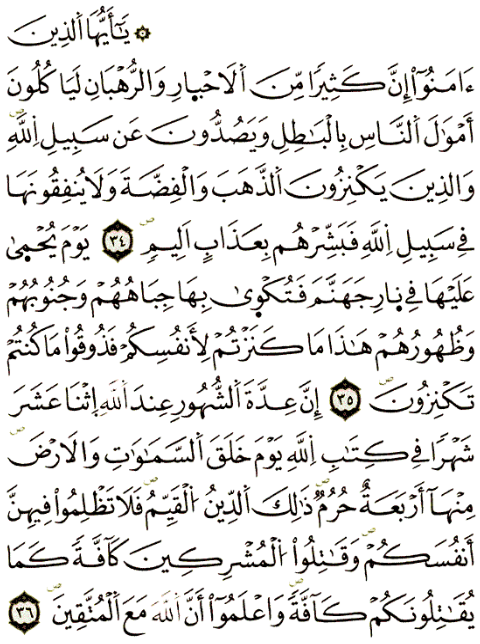 ۞ يَٰٓأَيُّهَا اَ۬لذِينَ
ءَامَنُوٓاْ إِنَّ كَثِيراٗ مِّنَ اَ۬لَاحْبِارِ وَالرُّهْبَانِ لَيَاكُلُونَ
أَمْوَٰلَ اَ۬لنَّاسِ بِالْبَٰطِلِ وَيَصُدُّونَ عَن سَبِيلِ اِ۬للَّهِۖ
وَالذِينَ يَكْنِزُونَ اَ۬لذَّهَبَ وَالْفِضَّةَ وَلَا يُنفِقُونَهَا
فِے سَبِيلِ اِ۬للَّهِ فَبَشِّرْهُم بِعَذَابٍ اَلِيمٖۖ ٣٤ يَوْمَ يُحْم۪يٰ
عَلَيْهَا فِے ن۪ارِ جَهَنَّمَ فَتُكْو۪يٰ بِهَا جِبَاهُهُمْ وَجُنُوبُهُمْ
وَظُهُورُهُمْ هَٰذَا مَا كَنَزْتُمْ لِأَنفُسِكُمْ فَذُوقُواْ مَا كُنتُمْ
تَكْنِزُونَۖ ٣٥ إِنَّ عِدَّةَ اَ۬لشُّهُورِ عِندَ اَ۬للَّهِ اِ۪ثْنَا عَشَرَ
شَهْراٗ فِے كِتَٰبِ اِ۬للَّهِ يَوْمَ خَلَقَ اَ۬لسَّمَٰوَٰتِ وَالَارْضَۖ
مِنْهَآ أَرْبَعَةٌ حُرُمٞۖ ذَٰلِكَ اَ۬لدِّينُ اُ۬لْقَيِّمُۖ فَلَا تَظْلِمُواْ فِيهِنَّ
أَنفُسَكُمْۖ وَقَٰتِلُواْ اُ۬لْمُشْرِكِينَ كَآفَّةٗ كَمَا
يُقَٰتِلُونَكُمْ كَآفَّةٗۖ وَاعْلَمُوٓاْ أَنَّ اَ۬للَّهَ مَعَ اَ۬لْمُتَّقِينَۖ ٣٦